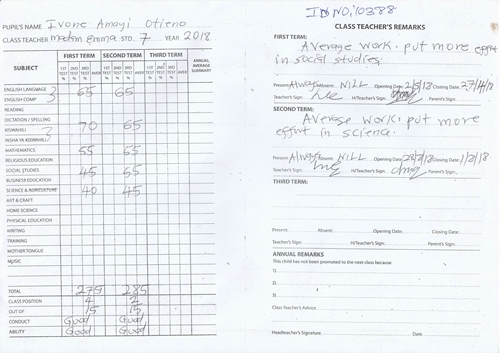 PUPIL'S NAME Ivone Amayi Otieno
CLASS TEACHER madam emma STD. 7 YEAR 2018
SUBJECT FIRST TERM SECOND TERM THIRD TERM ANNUAL AVERAGE SUMMARY
1ST TEST % 2ND TEST % 3RD TEST % AVER 1ST TEST % 2ND TEST % 3RD TEST % AVER 1ST TEST % 2ND TEST % 3RD TEST % AVER
ENGLISH LANGUAGE 65 65
ENGLISH COMP
READING
DICTATION / SPELLING
KISWAHILI 70 65
INSHA YA KISWAHILI
MATHEMATICS 55 55
RELIGIOUS EDUCATION
SOCIAL STUDIES 45 55
BUSINESS EDUCATION
SCIENCE & AGRICULTURE 40 45
ART & CRAFT
HOME SCIENCE
PHYSICAL EDUCATION
WRITING
TRAINING
MOTHER TONGUE
MUSIC
TOTAL 275 285
CLASS POSITION 4 2
OUT OF 15 15
CONDUCT Good Good
ABILITY Good Good
IDNO,10388
CLASS TEACHER'S REMARKS
FIRST TERM:
Average work. put more effort
in social studies.
Present: Always Absent: NILL Opening Date: Closing Date:
Teacher's Sign: H/Teacher's Sign: Parent's Sign:
SECOND TERM:
Average work. put more
effort in science.
Present: Always Absent: NILL Opening Date: Closing Date: 1/8/18
Teacher's Sign: H/Teacher's Sign: Parent's Sign:
THIRD TERM:
Present: Absent: Opening Date: Closing Date:
Teacher's Sign: H/Teacher's Sign: Parent's Sign:
ANNUAL REMARKS
This child has/not been promoted to the next class because
1)
2)
3)
Class Teacher's Advice
Headteacher's Signature Date